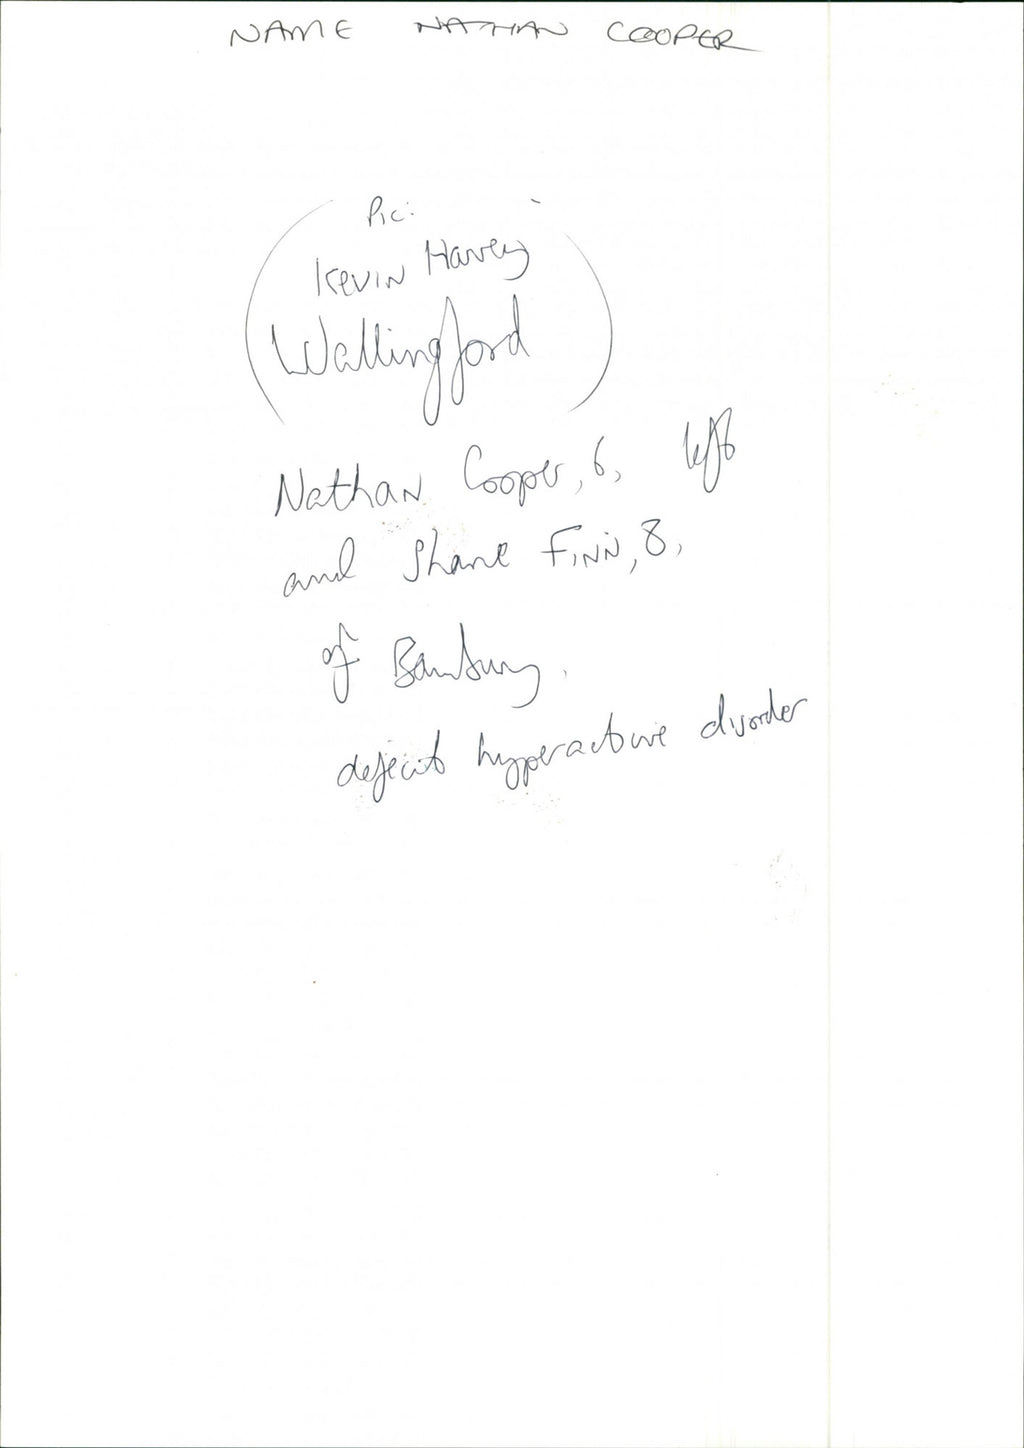 NAME NATHAN COOPER
Pic:
Kevin Harvey
Wallingford
Nathan Cooper, 6, left
and Shane Finn, 8,
of Banbury.
deficit hyperactive disorder